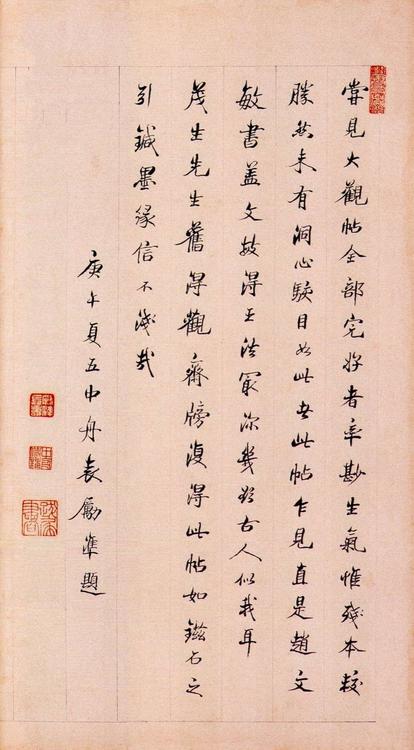 嘗見大觀帖全部完好者率尠生氣惟殘本較
勝然未有洞心駭目如此者此帖乍見直是趙文
敏書蓋文敏得王法最深幾欲古人似我耳
茂生先生舊得觀齋牓復得此帖如鎡石之
引鍼墨緣信不淺哉
庚午夏五中舟袁勵準題